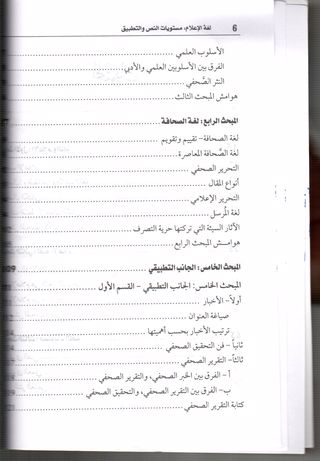 6 لغة الإعلام: مستويات النص والتطبيق
الأسلوب العلمي
الفرق بين الأسلوبين العلمي والأدبي
النثر الصَّحفي
هوامش المبحث الثالث
المبحث الرابع: لغة الصحافة
لغة الصحافة- تقييم وتقويم
لغة الصَّحافة المعاصرة
التحرير الصحفي
أنواع المقال
التحرير الإعلامي
لغة المُرسل
الآثار السيئة التي تركتها حرية التصرف
هوامش المبحث الرابع
المبحث الخامس: الجانب التطبيقي
المبحث الخامس: الجانب التطبيقي - القسم الأول
أولاً- الأخبار
صياغة العنوان
ترتيب الأخبار بحسب أهميتها
ثانياً- فن التحقيق الصحفي
ثالثاً- التقرير الصحفي
أ- الفرق بين الخبر الصحفي، والتقرير الصحفي
ب- الفرق بين التقرير الصحفي، والتحقيق الصحفي
كتابة التقرير الصحفي